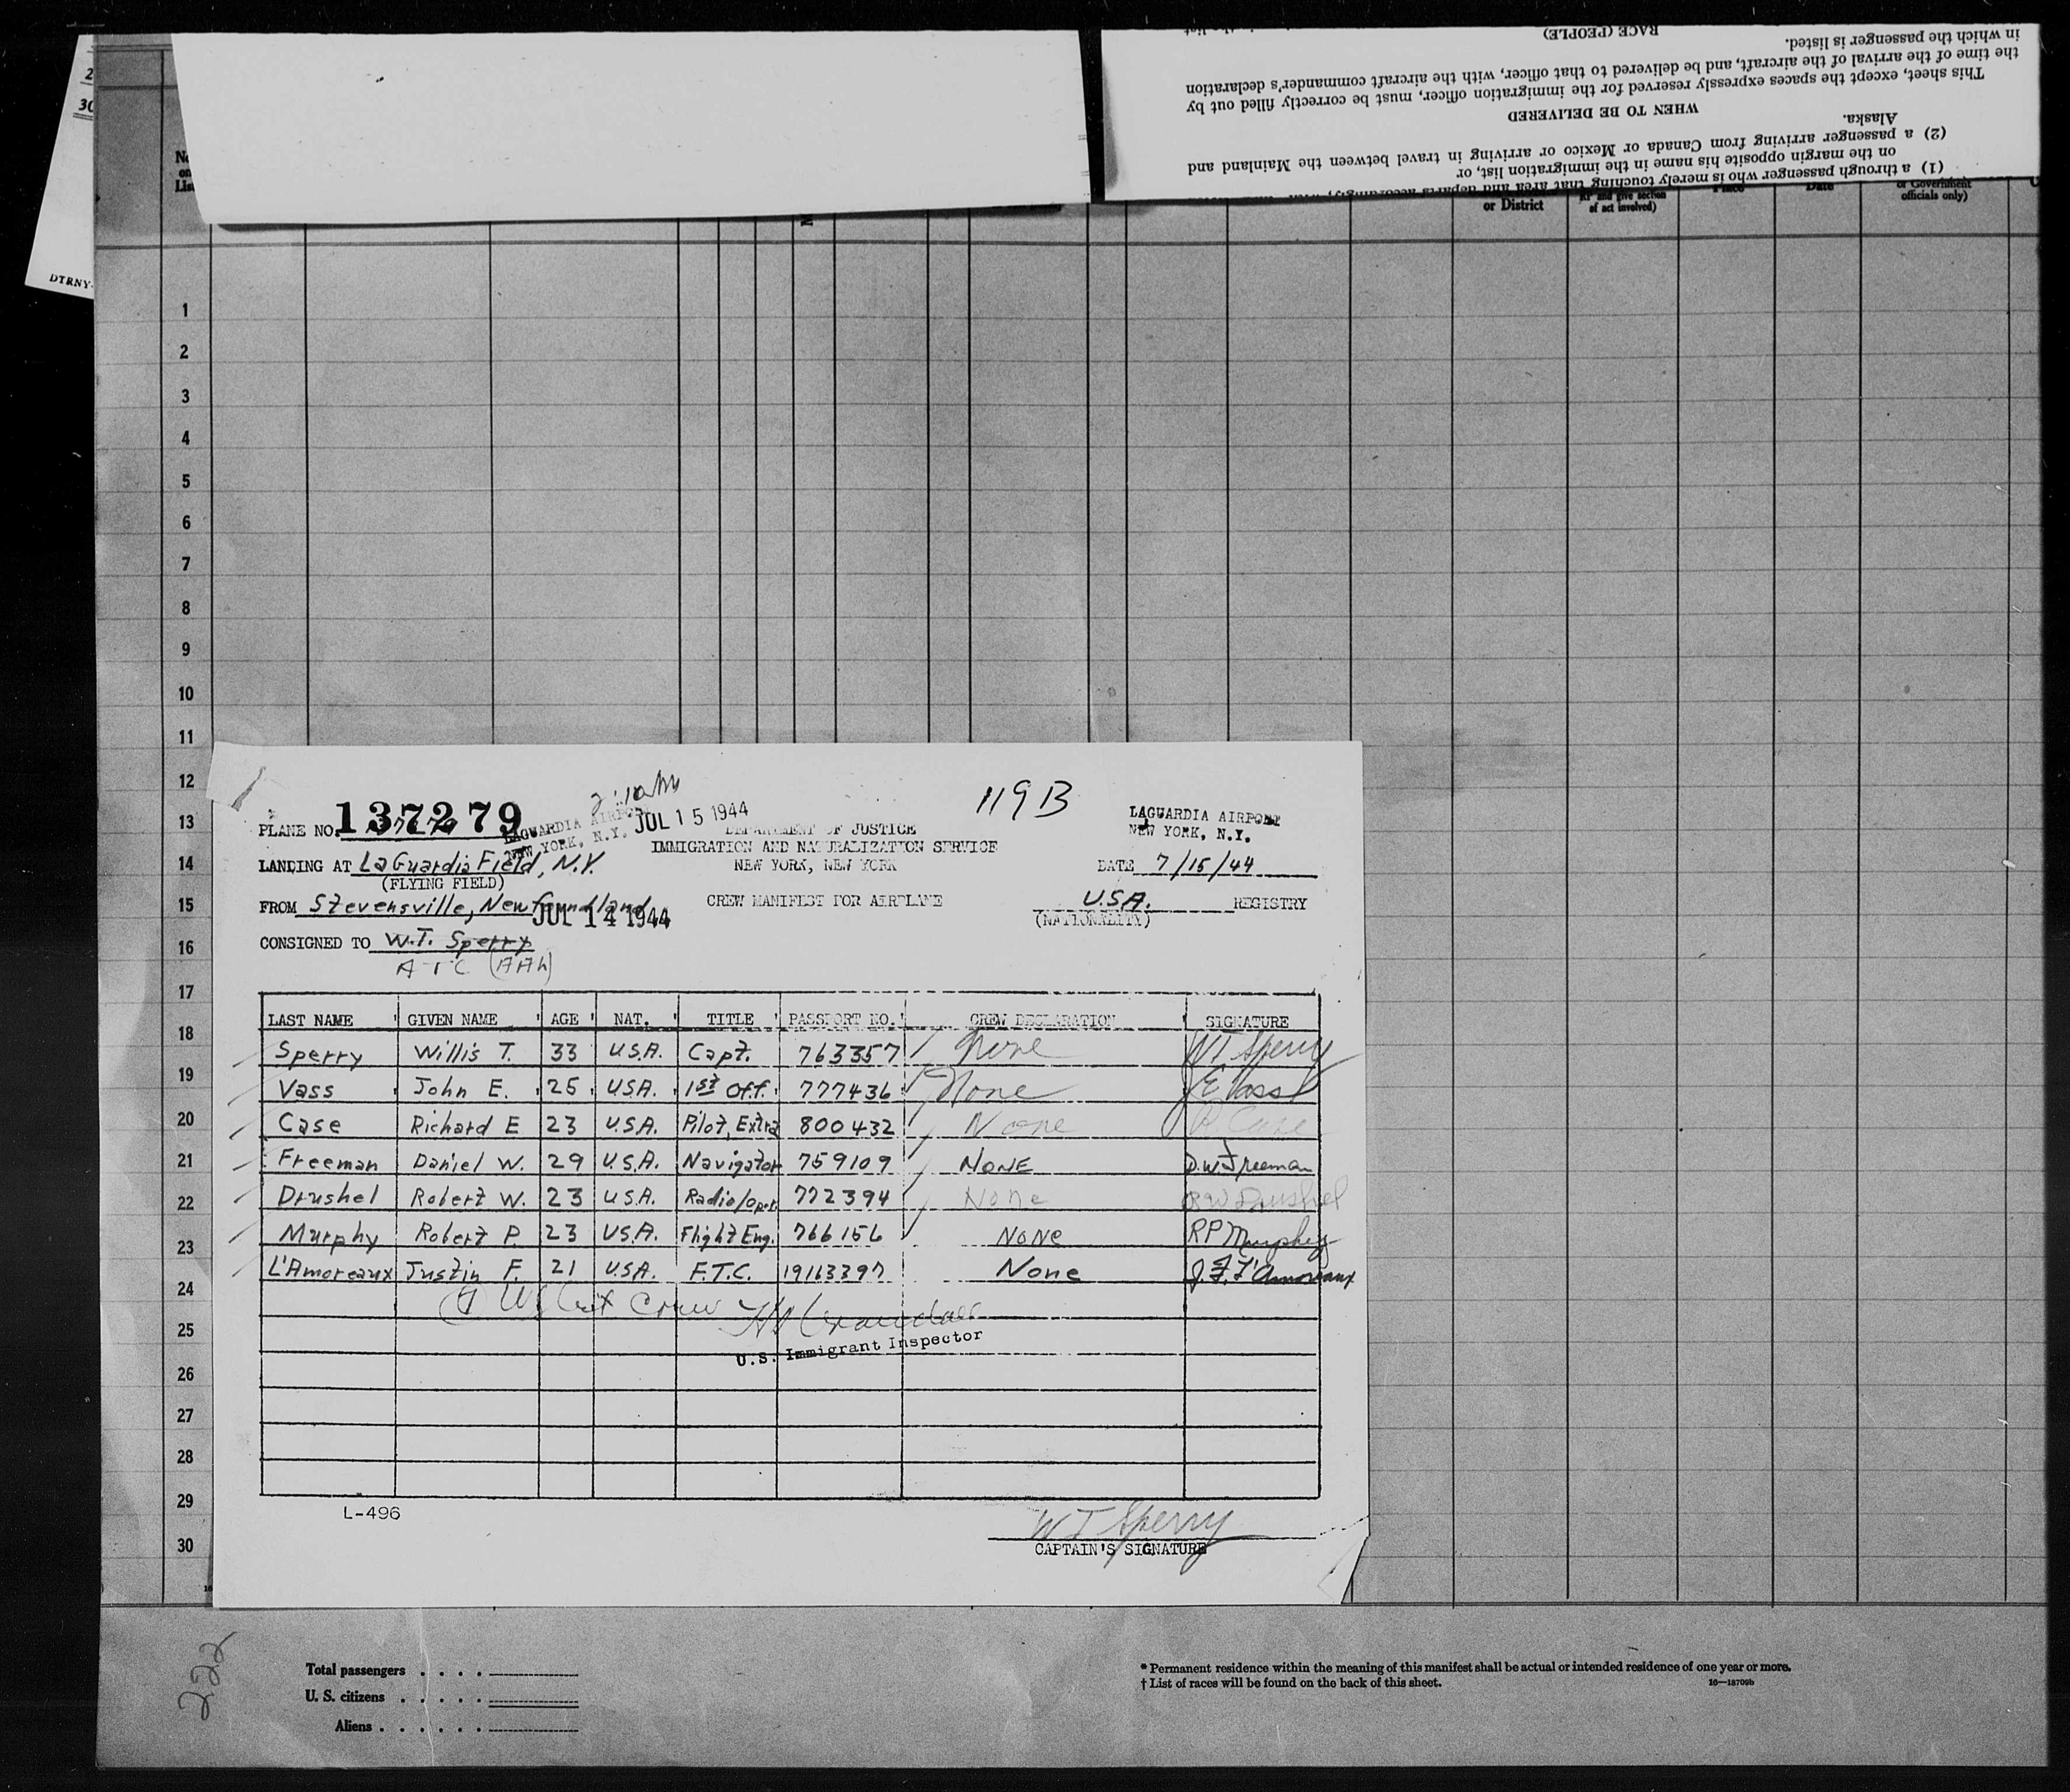 2
30
DTRNY-
No.
on
List
(1) a through passenger who is merely touching that area and departs accordingly,
on the margin opposite his name in the immigration list, or
(2) a passenger arriving from Canada or Mexico or arriving in travel between the Mainland and
Alaska.
WHEN TO BE DELIVERED
This sheet, except the spaces expressly reserved for the immigration officer, must be correctly filled out by
the time of the arrival of the aircraft, and be delivered to that officer, with the aircraft commander's declaration
in which the passenger is listed.
RACE (PEOPLE)
or District
RP and give section
of act involved)
Place
Date
or Government
officials only)
1
2
3
4
5
6
7
8
9
10
11
12
13
14
15
16
17
18
19
20
21
22
23
24
25
26
27
28
29
30
119B
PLANE NO. 137279
LAGUARDIA AIRPORT
NEW YORK, N.Y.
JUL 15 1944
LAGUARDIA AIRPORT
NEW YORK, N.Y.
DEPARTMENT OF JUSTICE
IMMIGRATION AND NATURALIZATION SERVICE
NEW YORK, NEW YORK
LANDING AT LaGuardia Field, N.Y.
(FLYING FIELD)
DATE 7/15/44
FROM Stevensville, Newfoundland
JUL 14 1944
CREW MANIFEST FOR AIRPLANE
U.S.A. REGISTRY
(NATIONALITY)
CONSIGNED TO W.T. Sperry
ATC (AAL)
LAST NAME GIVEN NAME AGE NAT. TITLE PASSPORT NO. CREW DECLARATION SIGNATURE
Sperry Willis T. 33 U.S.A. Capt. 763357 None WT Sperry
Vass John E. 25 U.S.A. 1st Off. 777436 None JE Vass
Case Richard E 23 U.S.A. Pilot, Extra 800432 None R Case
Freeman Daniel W. 29 U.S.A. Navigator 759109 NONE D.W. Freeman
Drushel Robert W. 23 U.S.A. Radio/Oper. 772394 None RW Drushel
Murphy Robert P. 23 U.S.A. Flight Eng. 766156 NONE RP Murphy
L'Amoreaux Justin F. 21 U.S.A. F.T.C. 19163397 None J.F. L'Amoreaux
Crew
U.S. Immigrant Inspector
L-496
WT Sperry
CAPTAIN'S SIGNATURE
222
Total passengers . . . .
U. S. citizens . . . . .
Aliens . . . . . .
* Permanent residence within the meaning of this manifest shall be actual or intended residence of one year or more.
† List of races will be found on the back of this sheet.
16—18709b